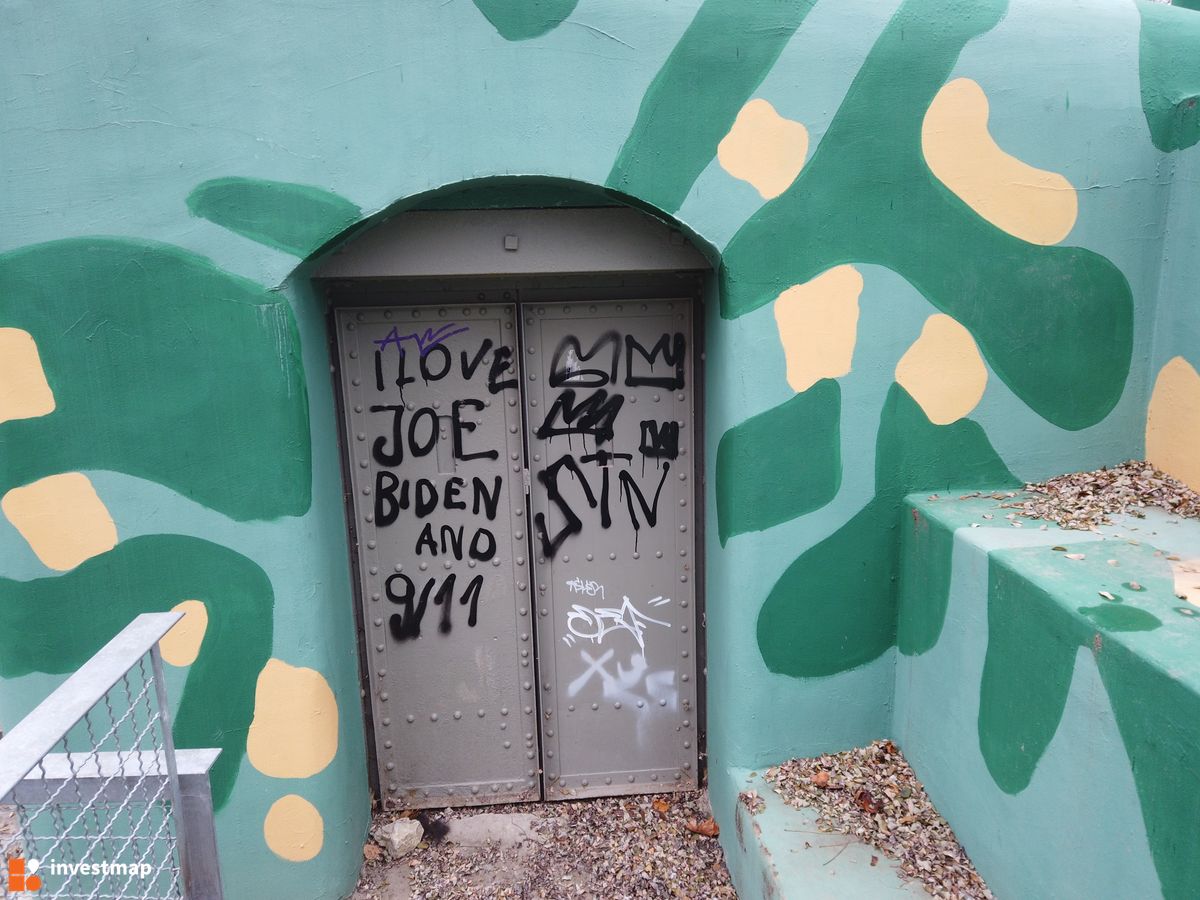 AW
I LOVE
JOE
BIDEN
AND
9/11
STN
investmap